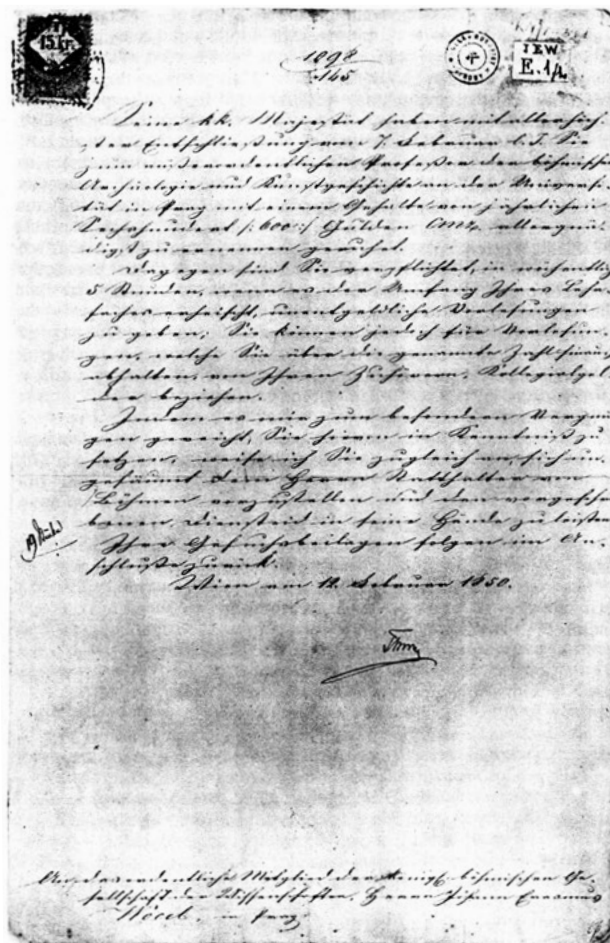 15 kr.
1098
165
IEW
E. 1/
Seine kk. Majestät haben mit allerhöch-
ster Entschließung vom 7. Februar l. J. Sie
zum außerordentlichen Professor der böhmischen
Archäologie und Kunstgeschichte an der Universi-
tät in Prag mit einem Gehalte von jährlichen
Sechshundert /: 600 :/ Gulden CMz. allergnä-
digst zu ernennen geruhet.
Dagegen sind Sie verpflichtet, in wöchentlich
5 Stunden, wenn es der Umfang Ihres Lehr-
faches erheischt, unentgeldliche Vorlesungen
zu geben; Sie können jedoch für Vorlesun-
gen, welche Sie über die genannte Zahl hinaus
abhalten, von Ihren Zuhörern Kollegialgel-
der beziehen.
Indem es mir zum besondern Vergnü-
gen gereicht, Sie hievon in Kenntniß zu
setzen, weise ich Sie zugleich an, sich un-
gesäumt dem Herrn Statthalter von
Böhmen vorzustellen und den vorgeschrie-
benen Diensteid in seine Hände zu leisten.
Ihre Gesuchsbeilagen folgen im An-
schluße zurück.
Wien am 12. Februar 1850.
Thun
An das ordentliche Mitglied der königl. böhmischen Ge-
sellschaft der Wissenschaften, Herrn Johann Erasmus
Wocel in Prag